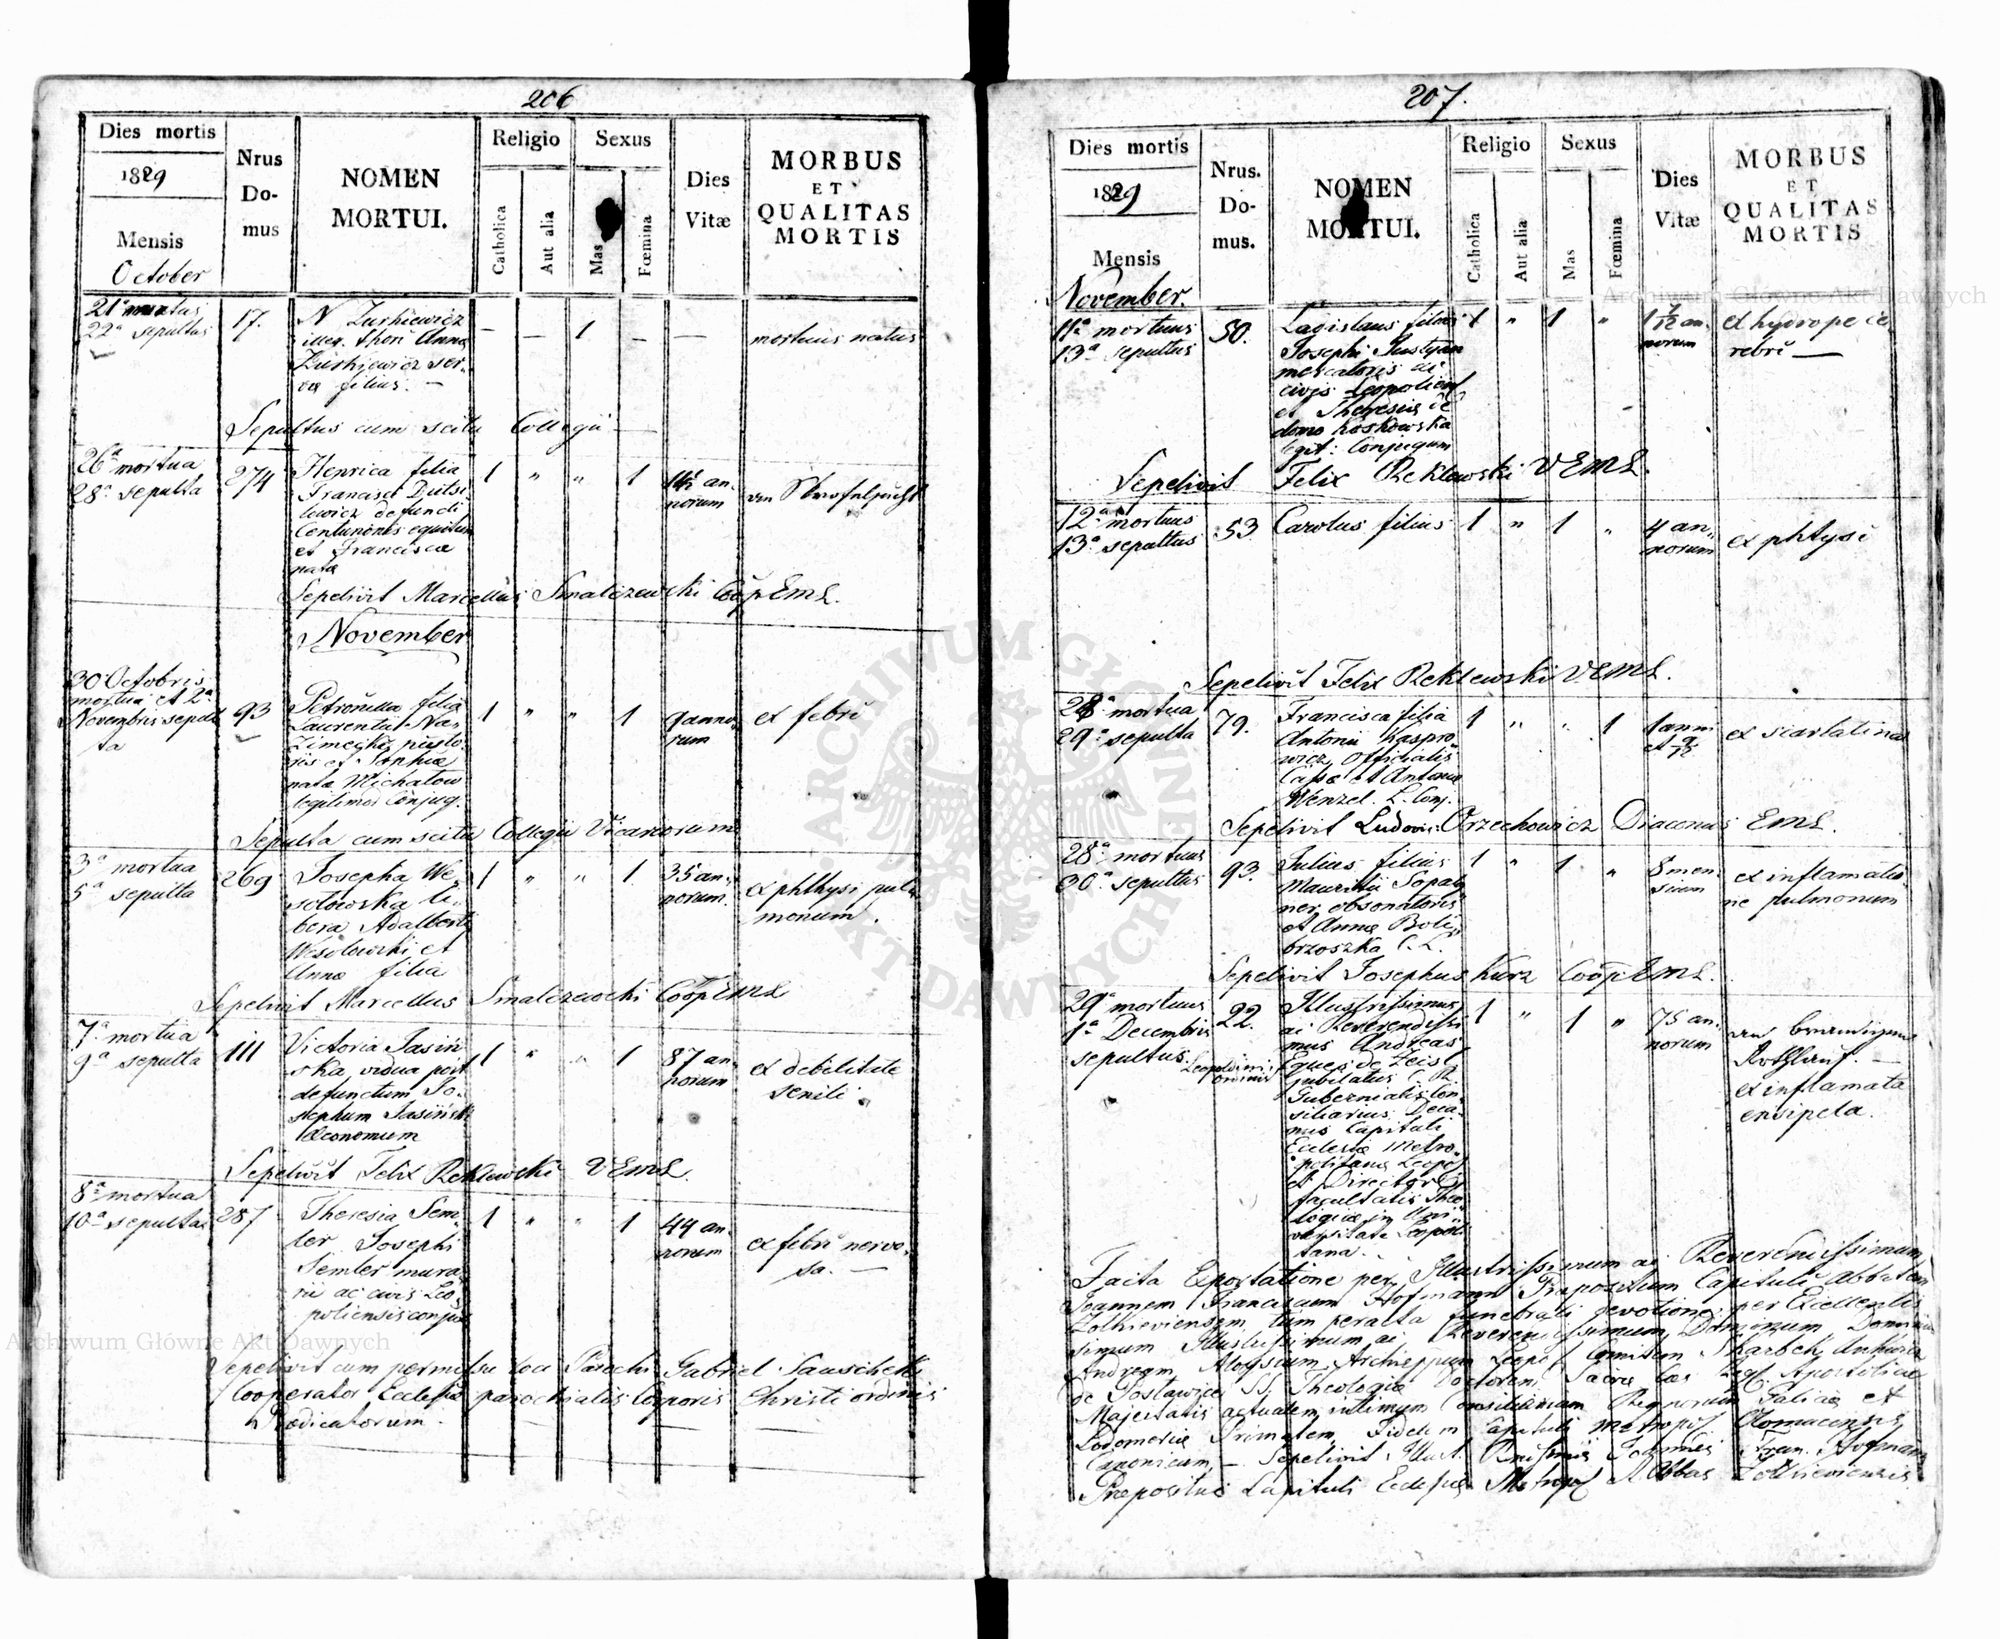 206
Dies mortis
1829
Mensis
October
Nrus
Do-
mus
NOMEN
MORTUI.
Religio
Catholica
Aut alia
Sexus
Mas
Fœmina
Dies
Vitæ
MORBUS
ET
QUALITAS
MORTIS
22ª sepultus
17.
N Zurkiewicz
Anna
Zurkiewicz ser-
væ filius. —
— — 1 — —
mortuus natus
Sepultus cum scitu Collegii —
26ª mortua
28ª sepulta
274
Henrica filia
Francisci
lewicz defuncti
Centurionis equitum
et Francisca
nata
1 " " 1
norum
Sepelivit Marcellus Smalczewski Coop EML.
November
30 Octobris
mortua et 2ª
Novembris sepul
ta
93
Petronella filia
Laurentii Na-
zimecki pisto-
ris et Sophia
nata Michalow
legitimor Conjug.
1 " " 1
9 anno-
rum
ex febri
Sepulta cum scitu Collegii Vicariorum
3ª mortua
5ª sepulta
269
Josepha We-
solowska li-
bera Adalberti
Wesolowski et
Anna filia
1 " " 1
35 an-
norum.
ex phthysi pul-
monum.
Sepelivit Marcellus Smalczewski Coop EML
7ª mortua
9ª sepulta
111
Victoria Jasiń
ska, vidua post
defunctum Jo-
sephum Jasiński
Œconomum
1 " " 1
87 an-
norum
ex debilitate
senili
Sepelivit Felix Reklewski VEML.
8ª mortua
10ª sepulta
287
Theresia Sem-
ler Josephi
Semler mura-
rii ac civis Leo-
poliensis conjux
1 " " 1
44 an-
norum
ex febri nervo-
sa. —
Sepelivit cum permissu loci Parochi Gabriel
Cooperator Ecclesiæ parochialis Corporis Christi ordinis
Prædicatorum.
207.
Dies mortis
1829
Mensis
November.
Nrus.
Do-
mus.
NOMEN
MORTUI.
Religio
Catholica
Aut alia
Sexus
Mas
Fœmina
Dies
Vitæ
MORBUS
ET
QUALITAS
MORTIS
11ª mortuus
13ª sepultus
50.
Ladislaus filius
Josephi Justyan
mercatoris ac
civis Leopolien
et Theresiæ de
domo Koskowska
legit: Conjugum
1 " 1 "
1 7/12 an-
norum
ex hydrope ce
rebri —
Sepelivit Felix Reklewski VEML.
12ª mortuus
13ª sepultus
53.
Carolus filius
1 " 1 "
4 an-
norum
ex phtysi
Sepelivit Felix Reklewski VEML.
28ª mortua
29ª sepulta
79.
Francisca filia
Antonii Kaspro
wicz Officialis
Cassæ et Antonia
Wenzel. L. Conj.
1 " " 1
ex scarlatina
Sepelivit Ludovic: Orzechowicz Diaconus EML.
28ª mortuus
30ª sepultus
93.
Julius filius
Mauritii
ner obsonatoris
et Anna
brzoszka C. L.
1 " 1 "
8 men-
sium
ex inflamatio-
ne pulmonum
Sepelivit Josephus Kurz Coop EML.
29ª mortuus
1ª Decembris
sepultus.
22.
Illustrissimus
ac Reverendissi
mus Andreas
Eques de Zeisl
Leopoldini
ordinis
Jubilatus C. R.
Gubernialis Con-
siliarius Deca-
nus Capituli
Ecclesiæ Metro-
politanæ Leopol
et Director
facultatis Theo
logicæ in Uni-
versitate Leopoli
tana.
1 " 1 "
75 an-
norum
Rothlauf. —
ex inflamata
ersipela.
Facta Exportatione per Illustrissimum ac Reverendissimum
Joannem Franciscum Hofmann Præpositum Capituli Abbatem
Zolkieviensem, tum peracta funebrali devotione per Excellentis
simum Illustrissimum ac Reverendissimum Dominum Dominum
Andream Aloysium Archieppum Leopol Comitem Skarbek Ankwicz
de Poslawice SS. Theologiæ Doctorem, Sacræ Cæs. Reg. Apostolicæ
Majestatis actualem intimum Consiliarium Regnorum Galiciæ et
Lodomeriæ Primatem, Fidelem Capituli Metropol Olomucensis
Canonicum, — Sepelivit Illust. Rndssmus Joannes Fran. Hofmann
Præpositus Capituli Ecclesiæ Metropol Abbas Zolkieviensis
Archiwum Główne Akt Dawnych
Archiwum Główne Akt Dawnych
ARCHIWUM GŁÓWNE AKT DAWNYCH